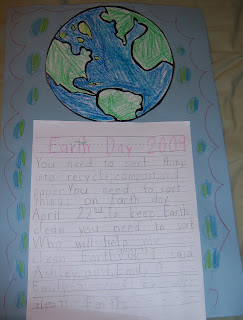 Earth Day 2009
You need to sort thing
into recycle, compost, and
paper. You need to sort
things on Earth day
April 22nd to keep Earth
clean you need to sort
Who will help me
clean Earth I said
and Emily
Emily
clean Earth